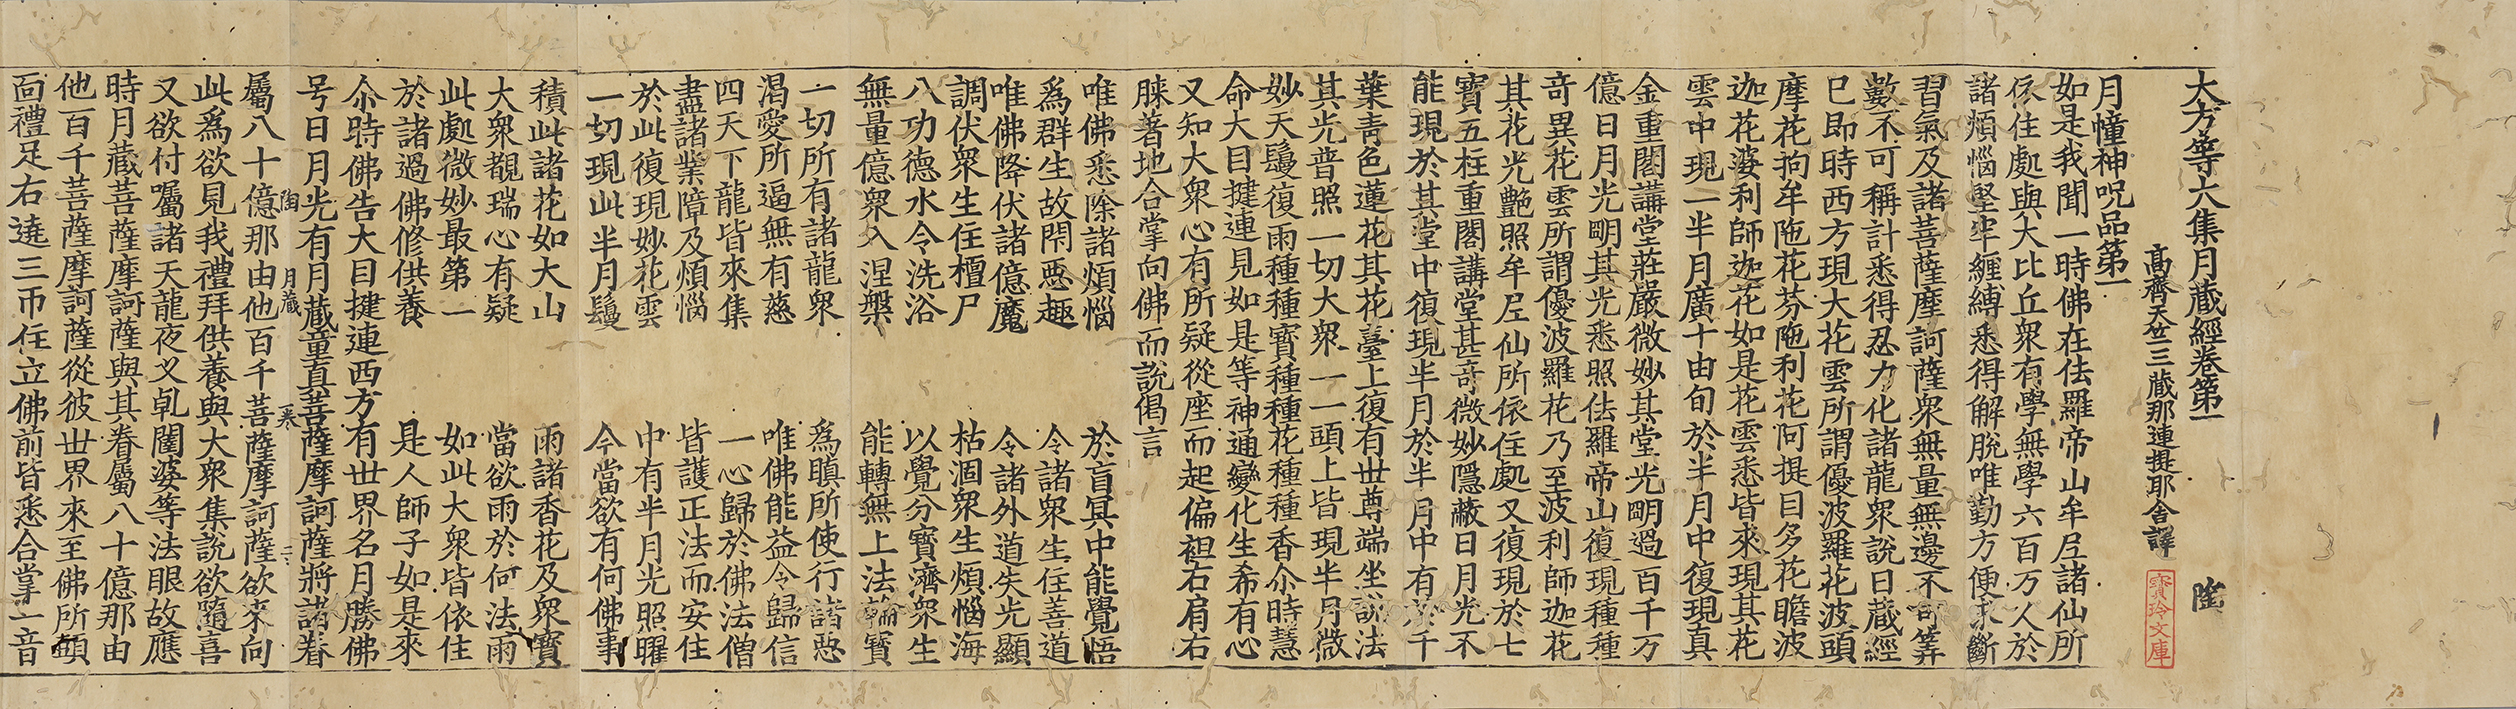 大方等大集月藏經卷第一 陶
高齊天竺三藏那連提耶舍譯
寶玲文庫
月幢神呪品第一
如是我聞一時佛在佉羅帝山牟尼諸仙所
依住處與大比丘衆有學無學六百万人於
諸煩惱堅牢纏縛悉得解脫唯勤方便求斷
習氣及諸菩薩摩訶薩衆無量無邊不可筭
數不可稱計悉得忍力化諸龍衆說日藏經
已即時西方現大花雲所謂優波羅花波頭
摩花拘牟陁花芬陁利花阿提目多花瞻波
迦花婆利師迦花如是花雲悉皆來現其花
雲中現一半月廣十由旬於半月中復現真
金重閣講堂莊嚴微妙其堂光明過百千万
億日月光明其光悉照佉羅帝山復現種種
奇異花雲所謂優波羅花乃至波利師迦花
其花光艷照牟尼仙所依住處又復現於七
寶五柱重閣講堂甚奇微妙隱蔽日月光不
能現於其堂中復現半月於半月中有於千
葉青色蓮花其花臺上復有世尊端坐說法
其光普照一切大衆一一頭上皆現半月微
妙天鬘復雨種種寶種種花種種香尒時慧
命大目揵連見如是等神通變化生希有心
又知大衆心有所疑從座而起偏袒右肩右
膝著地合掌向佛而說偈言
唯佛悉除諸煩惱 於盲冥中能覺悟
爲群生故閇惡趣 令諸衆生住善道
唯佛降伏諸億魔 令諸外道失光顯
調伏衆生住檀尸 枯涸衆生煩惱海
八功德水令洗浴 以覺分寶濟衆生
無量億衆入涅槃 能轉無上法輪寶
一切所有諸龍衆 爲瞋所使行諸惡
渴愛所逼無有慈 唯佛能益令歸信
四天下龍皆來集 一心歸於佛法僧
盡諸業障及煩惱 皆護正法而安住
於此復現妙花雲 中有半月光照曜
一切現此半月鬘 今當欲有何佛事
積此諸花如大山 雨諸香花及衆寶
大衆覩瑞心有疑 當欲雨於何法雨
此處微妙最第一 如此大衆皆依住
於諸過佛修供養 是人師子如是來
尒時佛告大目揵連西方有世界名月勝佛
号日月光有月藏童真菩薩摩訶薩將諸眷
陶 月藏 一卷 二
屬八十億那由他百千菩薩摩訶薩欲來向
此爲欲見我禮拜供養與大衆集說欲隨喜
又欲付囑諸天龍夜叉乹闥婆等法眼故應
時月藏菩薩摩訶薩與其眷屬八十億那由
他百千菩薩摩訶薩從彼世界來至佛所頭
面禮足右遶三帀住立佛前皆悉合掌一音